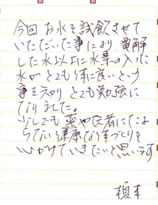 今回 お水を試飲させて
いただいた事により 電解
した水以上に水素の入った
水がとても体に良いという
事を知り とても勉強に
なりました。
少しでも薬や医者にたよ
らない健康な体づくりを
心がけていきたいと思います